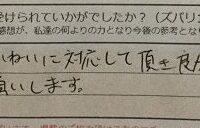 受けられていかがでしたか？（ズバリ
感想が、私達の何よりの力となり今後の参考とな
いねいに対応して頂き良か
願いします。